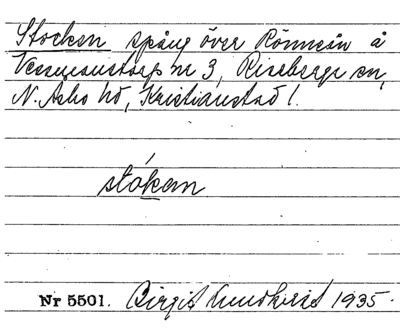 Stocken spång över Rönneån å
nr 3, Riseberga sn,
N. Åsbo hd, Kristianstad l.
stókan
Nr 5501. Birgit Lundkvist 1935.